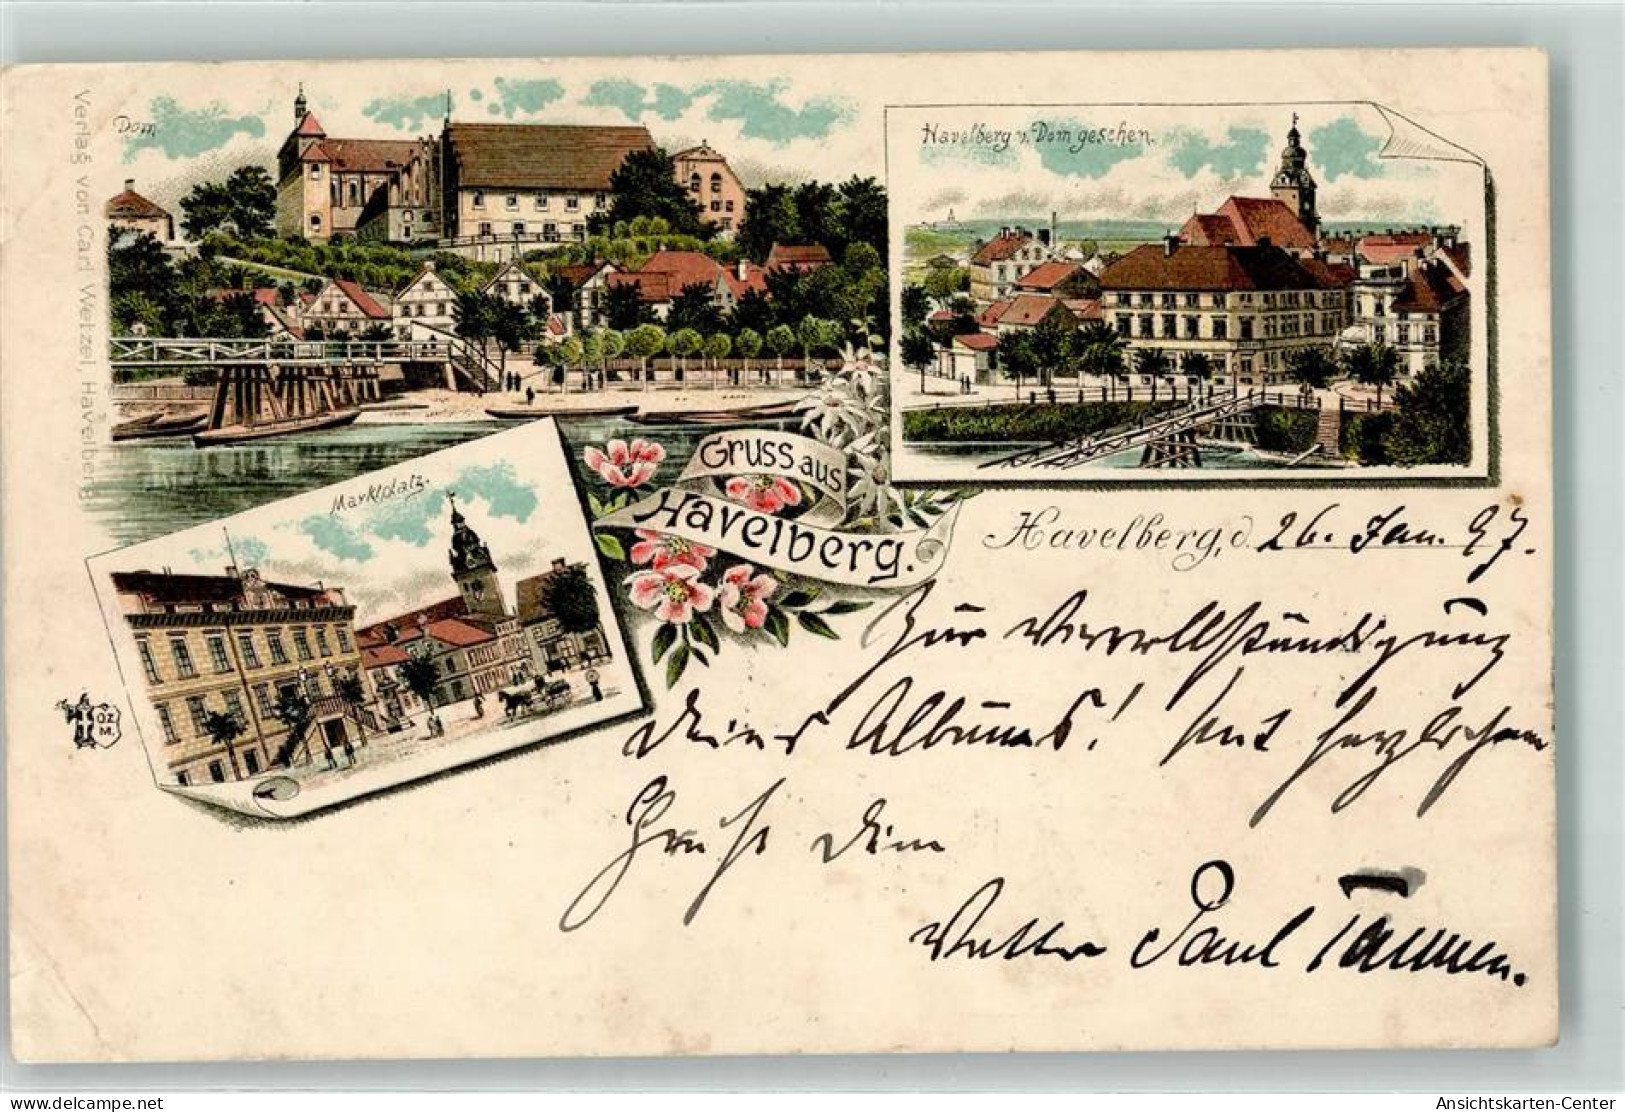 Verlag von Carl Wetzel, Havelberg
Dom
Havelberg v. Dom gesehen.
Marktplatz.
Gruss aus
Havelberg.
O.Z.
M.
Havelberg, d. 26. Jan. 97.
Zur Vervollständigung
Deines Albums! Mit herzlichem
Gruß Dein
Vetter Paul
www.delcampe.net
Ansichtskarten-Center